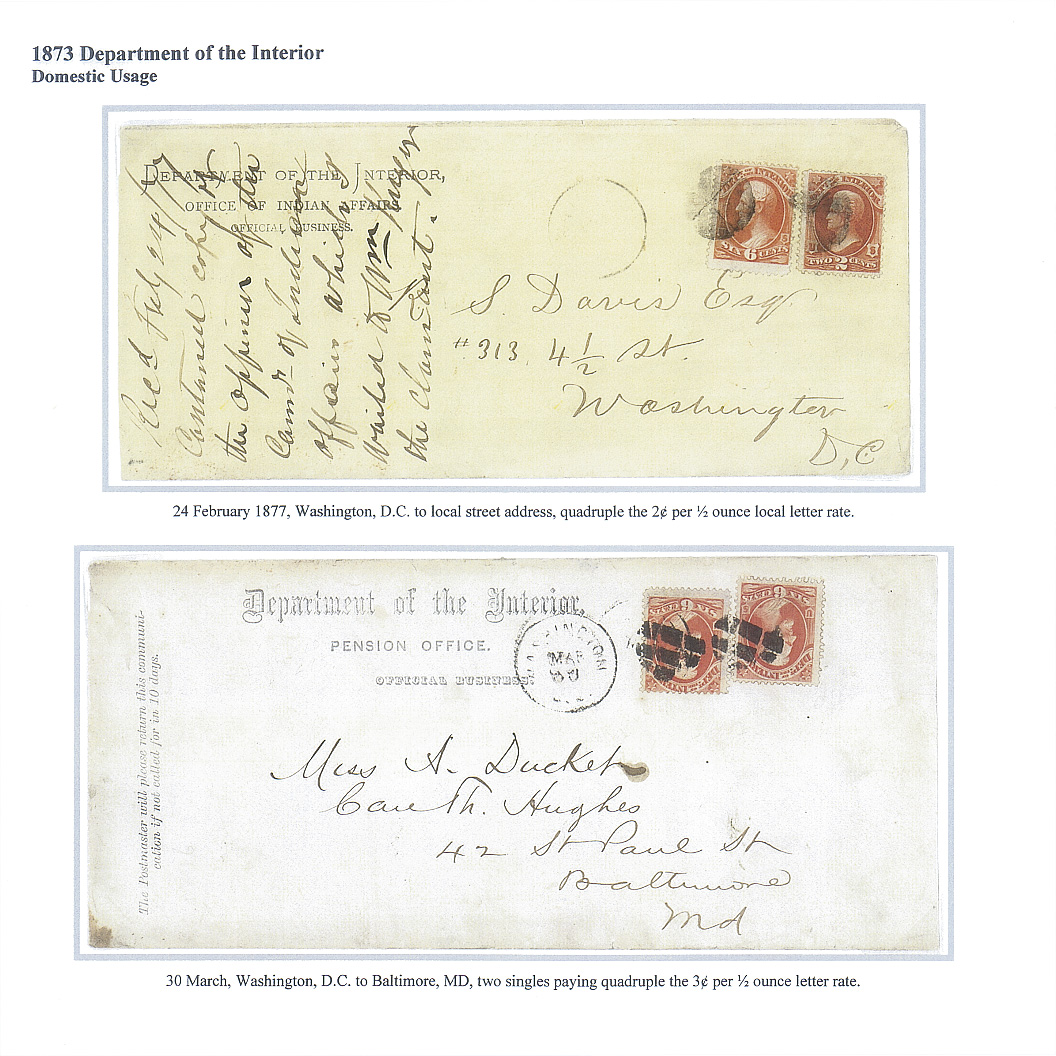 1873 Department of the Interior
Domestic Usage
DEPARTMENT OF THE INTERIOR,
OFFICE OF INDIAN AFFAIRS
OFFICIAL BUSINESS.
Rec'd Feby 24/77
Contained copy of
the opinion of the
Com'r of Indian
affairs which I
mailed to Wm
the claimant.
SIX 6 CENTS
TWO 2 CENTS
S. Davis Esq.
#313, 4½ St.
Washington
D,C
24 February 1877, Washington, D.C. to local street address, quadruple the 2¢ per ½ ounce local letter rate.
Department of the Interior,
PENSION OFFICE.
OFFICIAL BUSINESS.
The Postmaster will please return this communi-
cation if not called for in 10 days.
WASHINGTON
MAR
30
Miss A. Ducket
Care Th. Hughes
42 St Paul St
Baltimore
Md
30 March, Washington, D.C. to Baltimore, MD, two singles paying quadruple the 3¢ per ½ ounce letter rate.